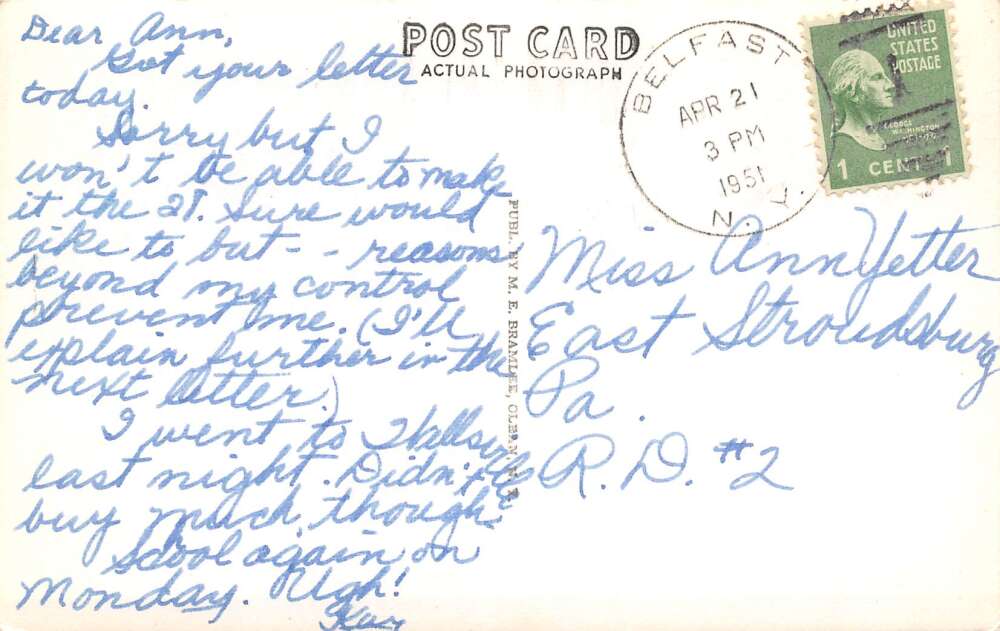 POST CARD
ACTUAL PHOTOGRAPH
Dear Ann,
Got your letter
today.
Sorry but I
won't be able to make
it the Sure would
like to but - - reasons
beyond my control
prevent me. (I'll
explain further in the
next letter.)
I went to Wellsville
last night. Didn't
buy much, though.
School again on
Monday. Ugh!
Kay
PUBL. BY M. E. BRAMLEE, OLEAN, N. Y.
BELFAST
APR 21
3 PM
1951
N. Y.
UNITED
STATES
POSTAGE
GEORGE
WASHINGTON
1 CENT 1
Miss Ann Yetter
East Stroudsburg
Pa.
R. D. #2